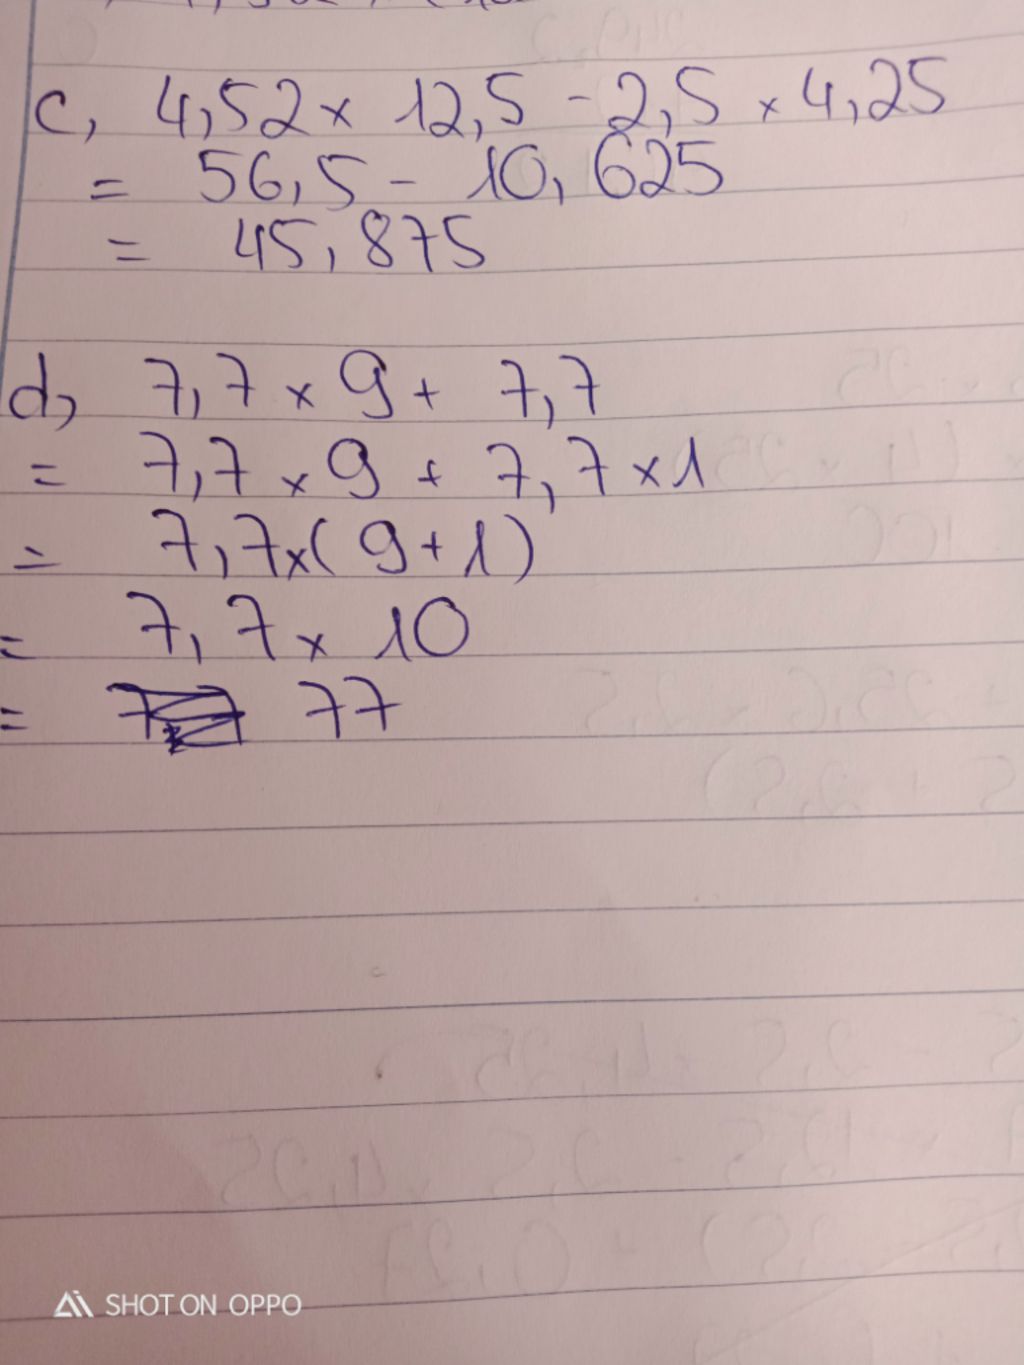 c, 4,52 x 12,5 - 2,5 x 4,25
= 56,5 - 10,625
= 45,875
d, 7,7 x 9 + 7,7
= 7,7 x 9 + 7,7 x 1
= 7,7 x ( 9 + 1 )
= 7,7 x 10
= 77
SHOT ON OPPO